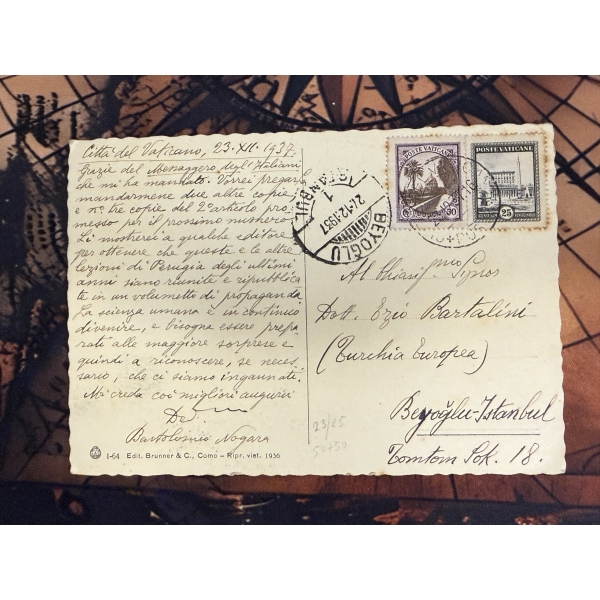 Città del Vaticano, 23.XII.1937.
Grazie del Messaggero degl'Italiani
che mi ha mandato. Vorrei pregarla
mandarmene due altre copie,
e n° tre copie del 2° articolo pro=
messo per il prossimo numero.
Li mostrerei a qualche editore
per ottenere che queste e le altre
lezioni di Perugia degli ultimi
anni siano riunite e ripubblica=
te in un volumetto di propaganda.
La scienza umana è in continuo
divenire, e bisogna essere prepa=
rati alle maggiori sorprese e
quindi a riconoscere, se neces=
sario, che ci siamo ingannati.
Mi creda coi migliori auguri
Bartolomeo Nogara
I-64 Edit. Brunner & C., Como – Ripr. viet. 1936
23/25
50+50
ISTANBUL
1
27-12-1937
BEYOĞLU
POSTE VATICANE
50
POSTE VATICANE
25
Al Chiarif.mo Signor
Dott. Ezio Bartalini
(Turchia Europea)
Beyoğlu-Istanbul
Tomtom Sok. 18.